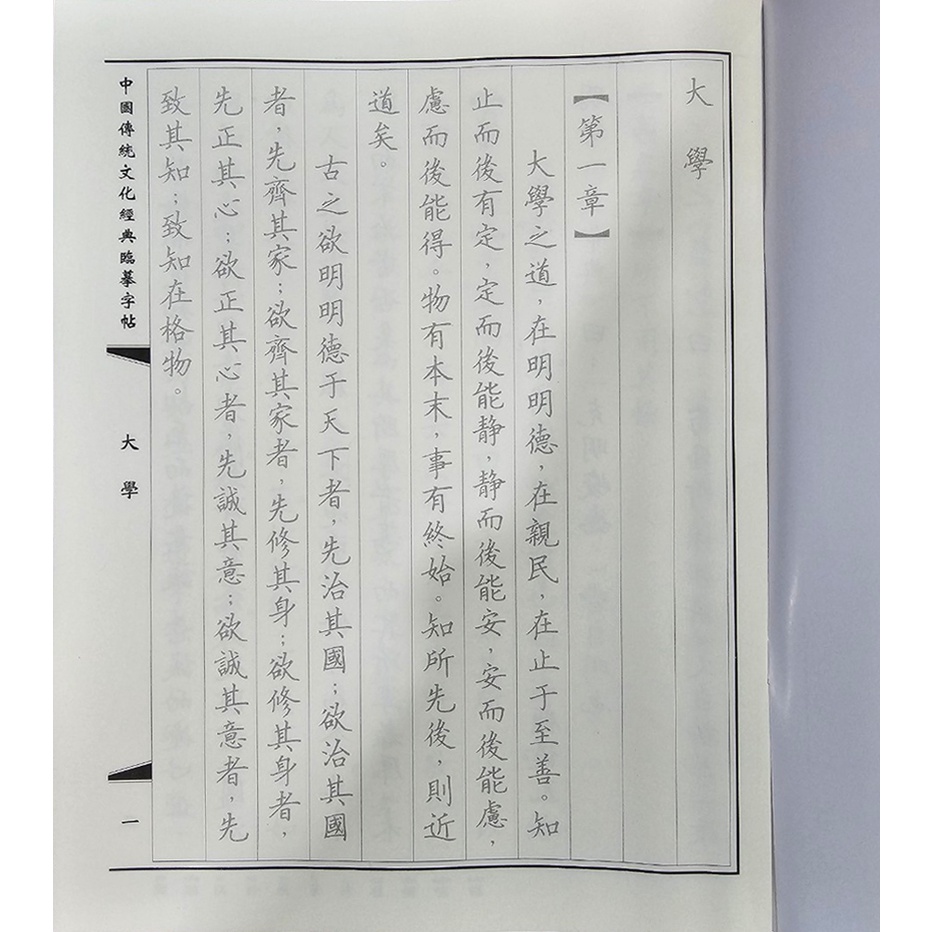 大學
【第一章】
大學之道，在明明德，在親民，在止于至善。知
止而後有定，定而後能靜，靜而後能安，安而後能慮，
慮而後能得。物有本末，事有終始。知所先後，則近
道矣。
古之欲明明德于天下者，先治其國；欲治其國
者，先齊其家；欲齊其家者，先修其身；欲修其身者，
先正其心；欲正其心者，先誠其意；欲誠其意者，先
致其知；致知在格物。
中國傳統文化經典臨摹字帖
大學
一